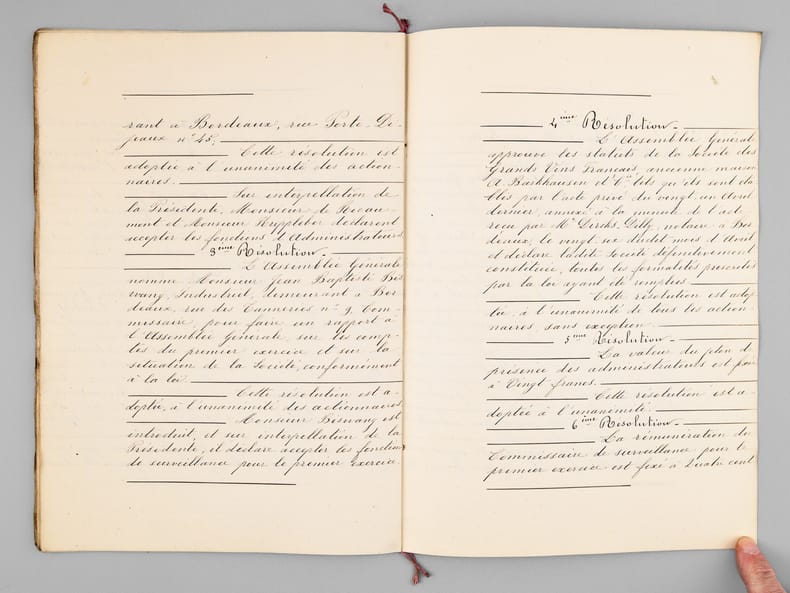 rant à Bordeaux, rue Porte Di-
jeaux n° 45;
Cette résolution est
adoptée à l'unanimité des action-
naires.
Sur interpellation de
la Présidente, Monsieur de Ricau-
mont et Monsieur déclarent
accepter les fonctions d'Administrateurs
3ème Résolution.
L'Assemblée Générale
nomme Monsieur Jean Baptiste Bis
wang, Industriel, demeurant à Bor
deaux, rue des Tanneries n° 9, Com-
missaire pour faire un rapport à
l'Assemblée Générale sur les comp-
tes du premier exercice et sur la
situation de la Société, conformément
à la loi.
Cette résolution est a-
doptée, à l'unanimité des actionnaires
Monsieur Biswang est
introduit, et sur interpellation de la
Présidente, il déclare accepter les fonctions
de surveillance pour le premier exercice.
4ème Résolution.
L'Assemblée Générale
approuve les statuts de la Société des
Grands Vins Français, ancienne maison
A. Barkhausen et Cie tels qu'ils sont éta
blis par l'acte privé du vingt un Avril
dernier, annexé à la minute de l'acte
reçu par Me Dircks-Dilly, notaire à Bor
deaux, le vingt six dudit mois d'Avril
et déclare ladite Société définitivement
constituée, toutes les formalités prescrites
par la loi ayant été remplies
Cette résolution est adop
tée, à l'unanimité de tous les action
naires, sans exception.
5ème Résolution.
La valeur du jeton de
présence des administrateurs est fixée
à Vingt francs.
Cette résolution est a-
doptée à l'unanimité.
6ème Résolution.
La rémunération du
Commissaire de surveillance pour le
premier exercice est fixé à Quatre cent